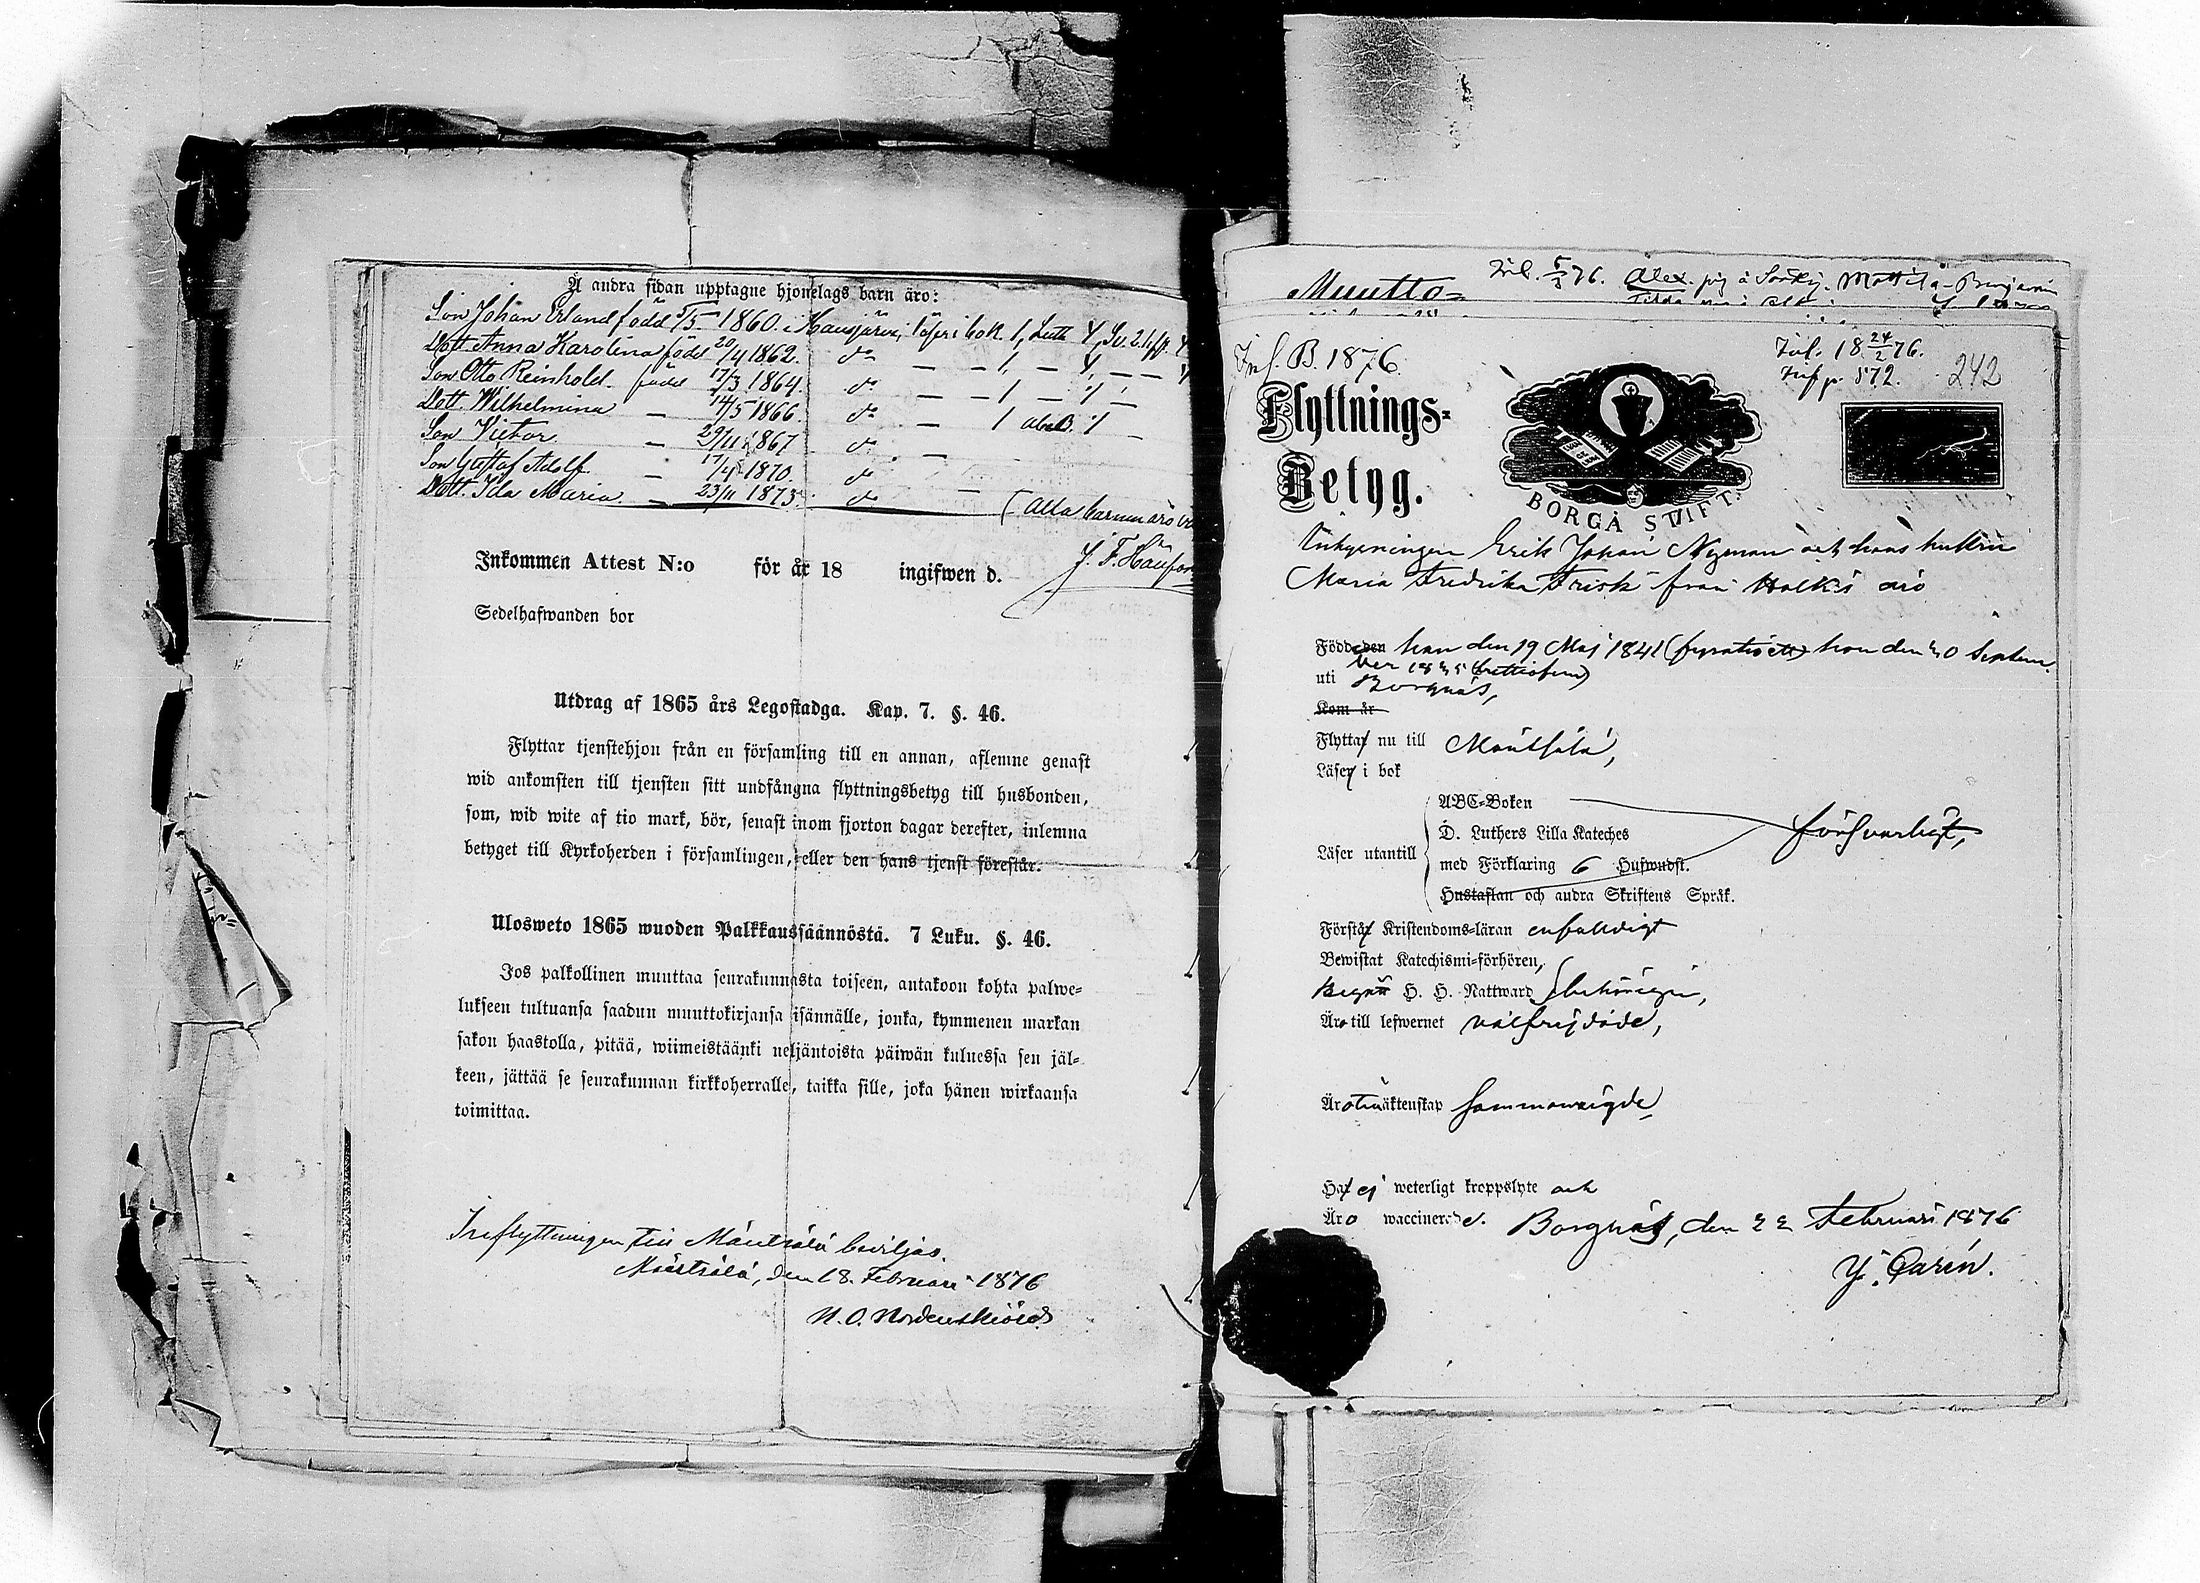 Å andra sidan upptagne hjonelags barn äro:
Son Johan Erland född 5/5 1860. i Hausjärvi, läser i bok. 1, Luth
Dott. Anna Karolina född 20/4 1862. do — 1,
Son Otto Reinhold. född 17/3 1864. do — 1
Dott. Wilhelmina — 14/5 1866. do — 1 Abc B.
Son Victor — 29/11 1867 do
Son Gustaf Adolf — 17/4 1870. do
Dott. Ida Maria. — 23/11 1873. do
(Alla barnen äro
Inkommen Attest N:o för år 18 ingifwen d.
J. F.
Sedelhafwanden bor
Utdrag af 1865 års Legostadga. Kap. 7. §. 46.
Flyttar tjenstehjon från en församling till en annan, aflemne genast
wid ankomsten till tjensten sitt undfångna flyttningsbetyg till husbonden,
som, wid wite af tio mark, bör, senast inom fjorton dagar derefter, inlemna
betyget till Kyrkoherden i församlingen, eller den hans tjenst förestår.
Ulosweto 1865 wuoden Palkkaussäännöstä. 7 Luku. §. 46.
Jos palkollinen muuttaa seurakunnasta toiseen, antakoon kohta palwe-
lukseen tultuansa saadun muuttokirjansa isännälle, jonka, kymmenen markan
sakon haastolla, pitää, wiimeistäänki neljäntoista päiwän kuluessa sen jäl-
keen, jättää se seurakunnan kirkkoherralle, taikka sille, joka hänen wirkaansa
toimittaa.
Inflyttningen till Mäntsälä beviljas.
Mäntsälä, den 18. Februari 1876
N. O. Nordenskiöld
Muutto-
5/2 76. Alex. Mattila Benjamin
Inf. B. 1876.
24/2 76.
Inf p. 572. 242
Flyttnings-
Betyg.
BORGÅ STIFT.
Inhysningen Erik Johan Nyman och hans hustru
Maria Fredrika Frisk från äro
Födde den han den 19 Maj 1841 (fyratioett) hon den 20 Septem-
ber 1835 (trettiofem)
uti Borgnäs,
Kom år
Flyttar nu till Mäntsälä,
Läser i bok
ABC-Boken
D. Luthers Lilla Kateches försvarligt,
Läser utantill
med Förklaring 6 Hufwudst.
Hustaflan och andra Skriftens Språk.
Förstår Kristendoms-läran enfaldigt
Bewistat Katechismi-förhören,
Begått H. H. Nattward behörigen,
Äro till lefwernet välfrejdade,
Äro till äktenskap sammanvigde
Ha ej weterligt kroppslyte och
Äro waccinerade. Borgnäs, den 22 Februari 1876